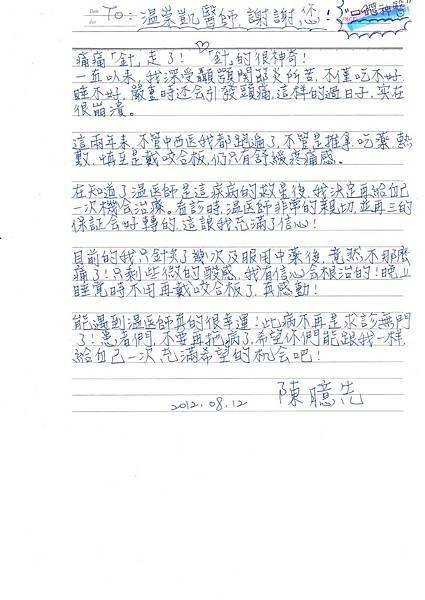 Date
To: 溫崇凱醫師, 謝謝您!
"口腔神醫"
痛痛「針」走了!「針」的很神奇!
一直以來,我深受顳顎關節炎所苦,不僅吃不好.
睡不好,嚴重時还会引發頭痛,這样的過日子,实在
很崩潰。
這兩年來,不管中西医我都跑遍了,不管是推拿,吃藥,熱
敷,慎至是戴咬合板,仍只有舒緩疼痛感。
在知道了溫医師是這疾病的救星後,我決定再給自己
一次機会治療。看診時,溫医師非常的親切,並再三的
保証会好轉的,這讓我充滿了信心!
目前的我只針灸了幾次及服用中藥後,竟然不那麼
痛了!只剩些微的酸感,我有信心会根治的!晚上
睡覺時不用再戴咬合板了,真感動!
能遇到溫医師真的很幸運!此病不再是求診無門
了!患者們,不要再拖病了,希望你們能跟我一样,
給自己一次充滿希望的机会吧!
陳臆先
2012.08.12